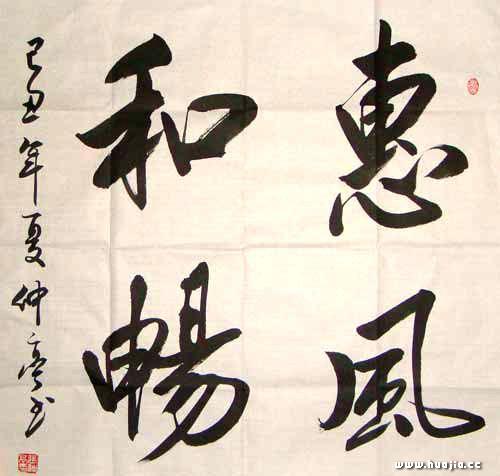 惠風
和暢
己丑年夏仲亭书
www.huajia.cc